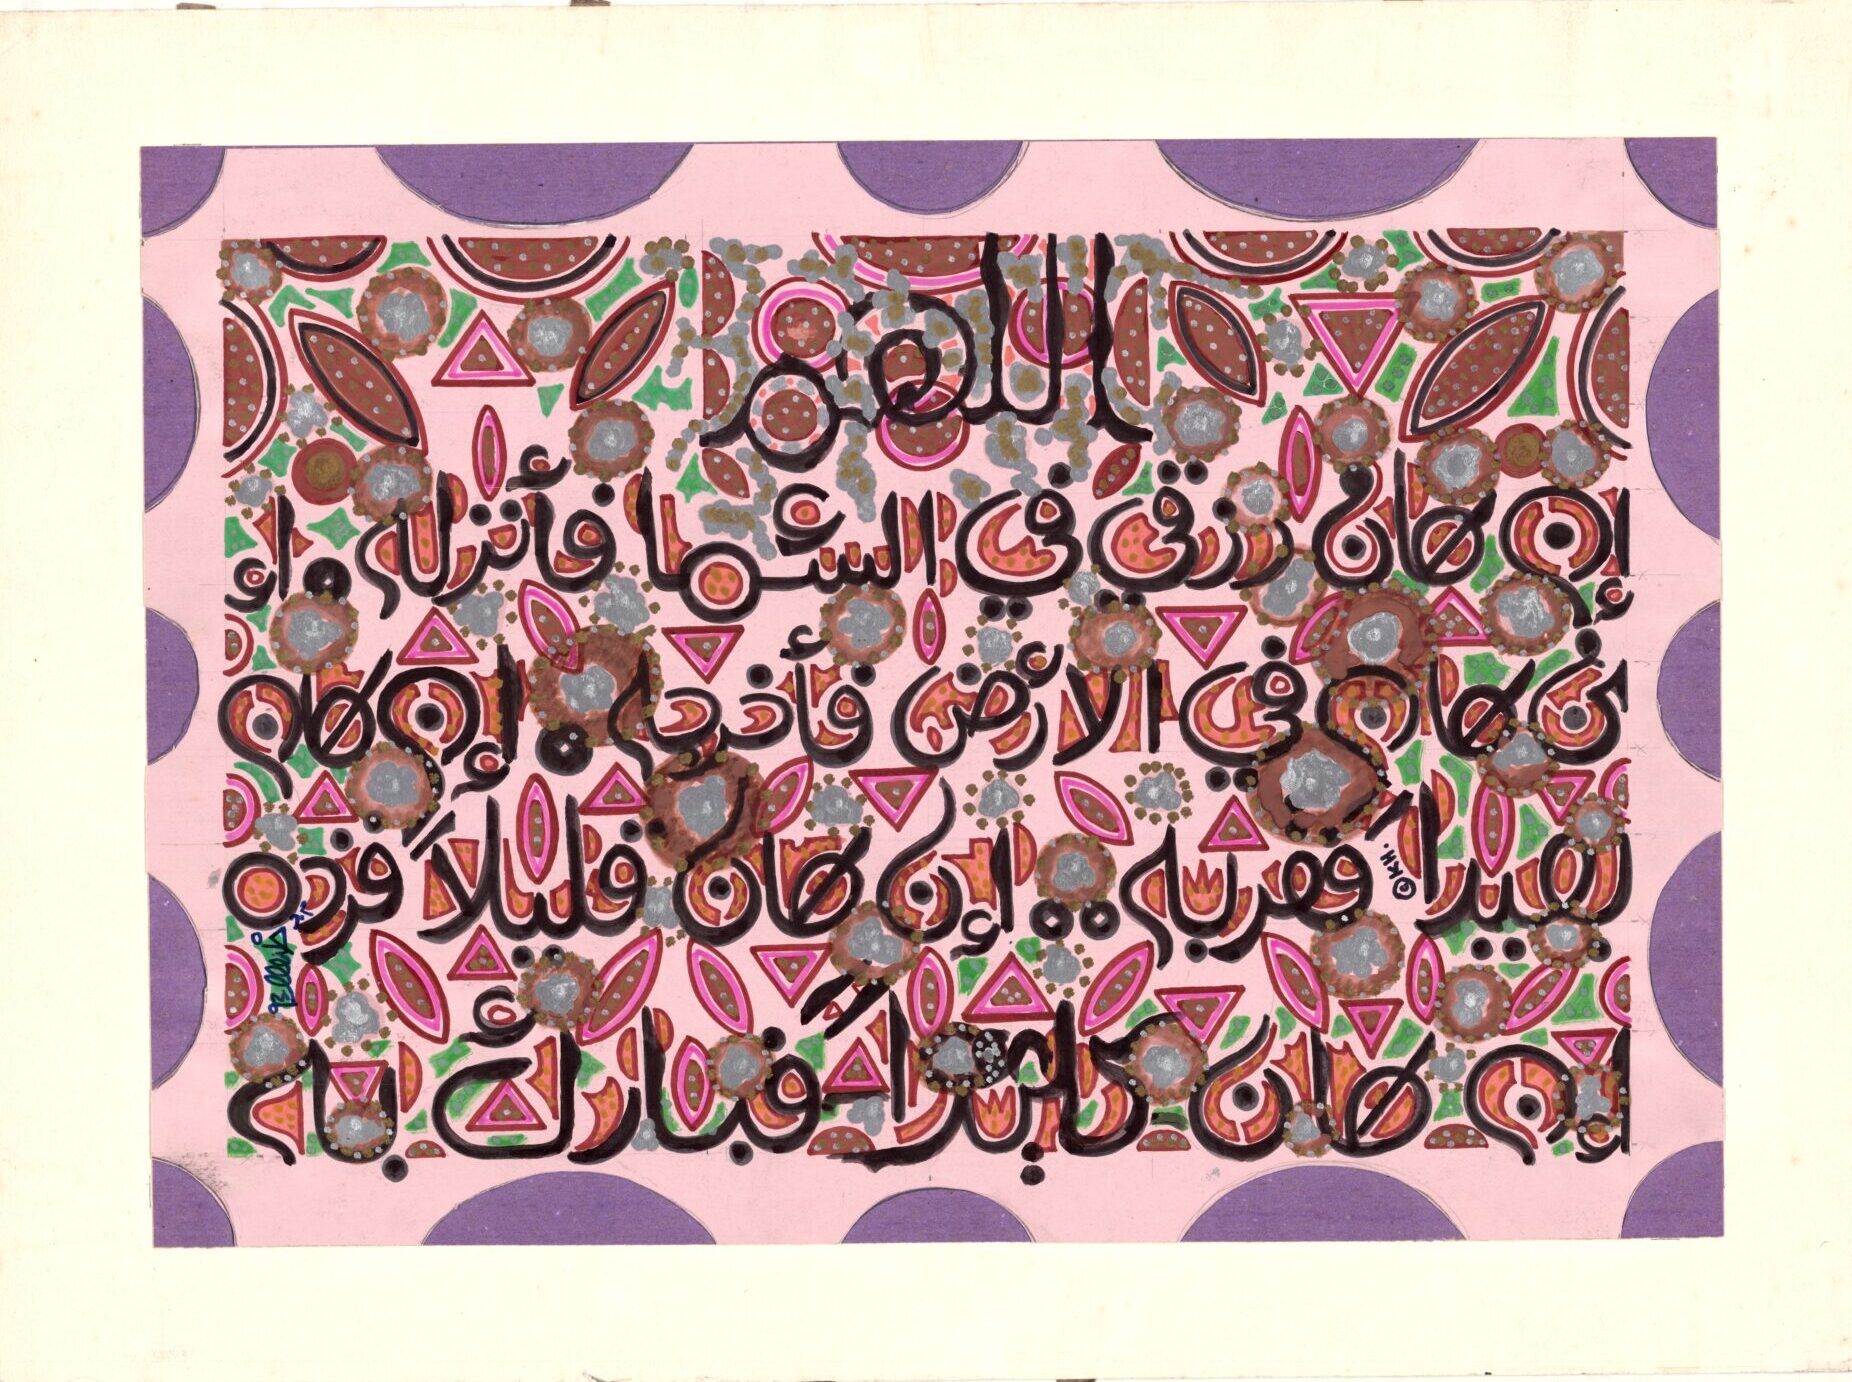 اللهم
إن كان رزقي في السماء فأنزله. وإ
ن كان في الأرض فأخرجه. إن كان
بعيداً فقربه.. إن كان قليلاً فزده
إن كان كثيراً فبارك به
©KH.